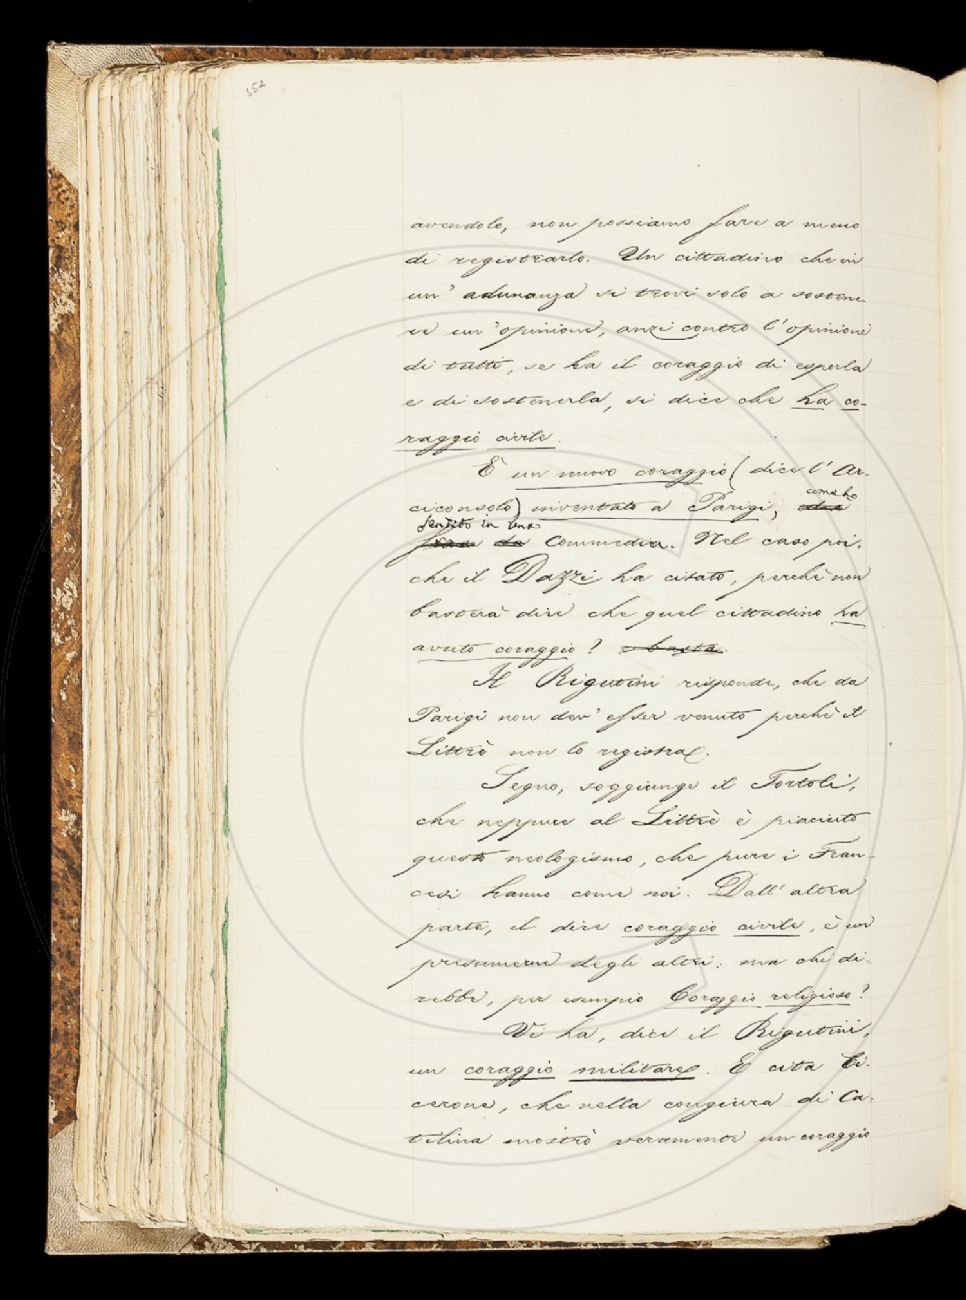 352
avendolo, non possiamo fare a meno
di registrarlo. Un cittadino che in
un' adunanza si trovi solo a sostene-
re un' opinione, anzi contro l'opinione
di tutti, se ha il coraggio di esporla
e di sostenerla, si dice che ha co-
raggio civile.
È un nuovo coraggio (dice l'Ar-
come ho
ciconsolo) inventato a Parigi,
sentito in una
Commedia. Nel caso poi,
che il Dazzi ha citato, perchè non
basterà dire che quel cittadino ha
avuto coraggio? basta
Il Rigutini risponde, che da
Parigi non dev' esser venuto perchè il
Littrè non lo registra.
Segno, soggiunge il Tortoli,
che neppure al Littrè è piaciuto
questo neologismo, che pure i Fran-
cesi hanno come noi. Dall' altra
parte, il dire coraggio civile, è un
presumerne degli altri: ma chi di-
rebbe, per esempio Coraggio religioso?
Vi ha, dice il Rigutini,
un coraggio militare. E cita Ci-
cerone, che nella congiura di Ca-
tilina mostrò veramente un coraggio